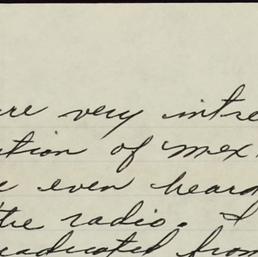 are very intre
ation of mex
e even heard
the radio. I
raduated from